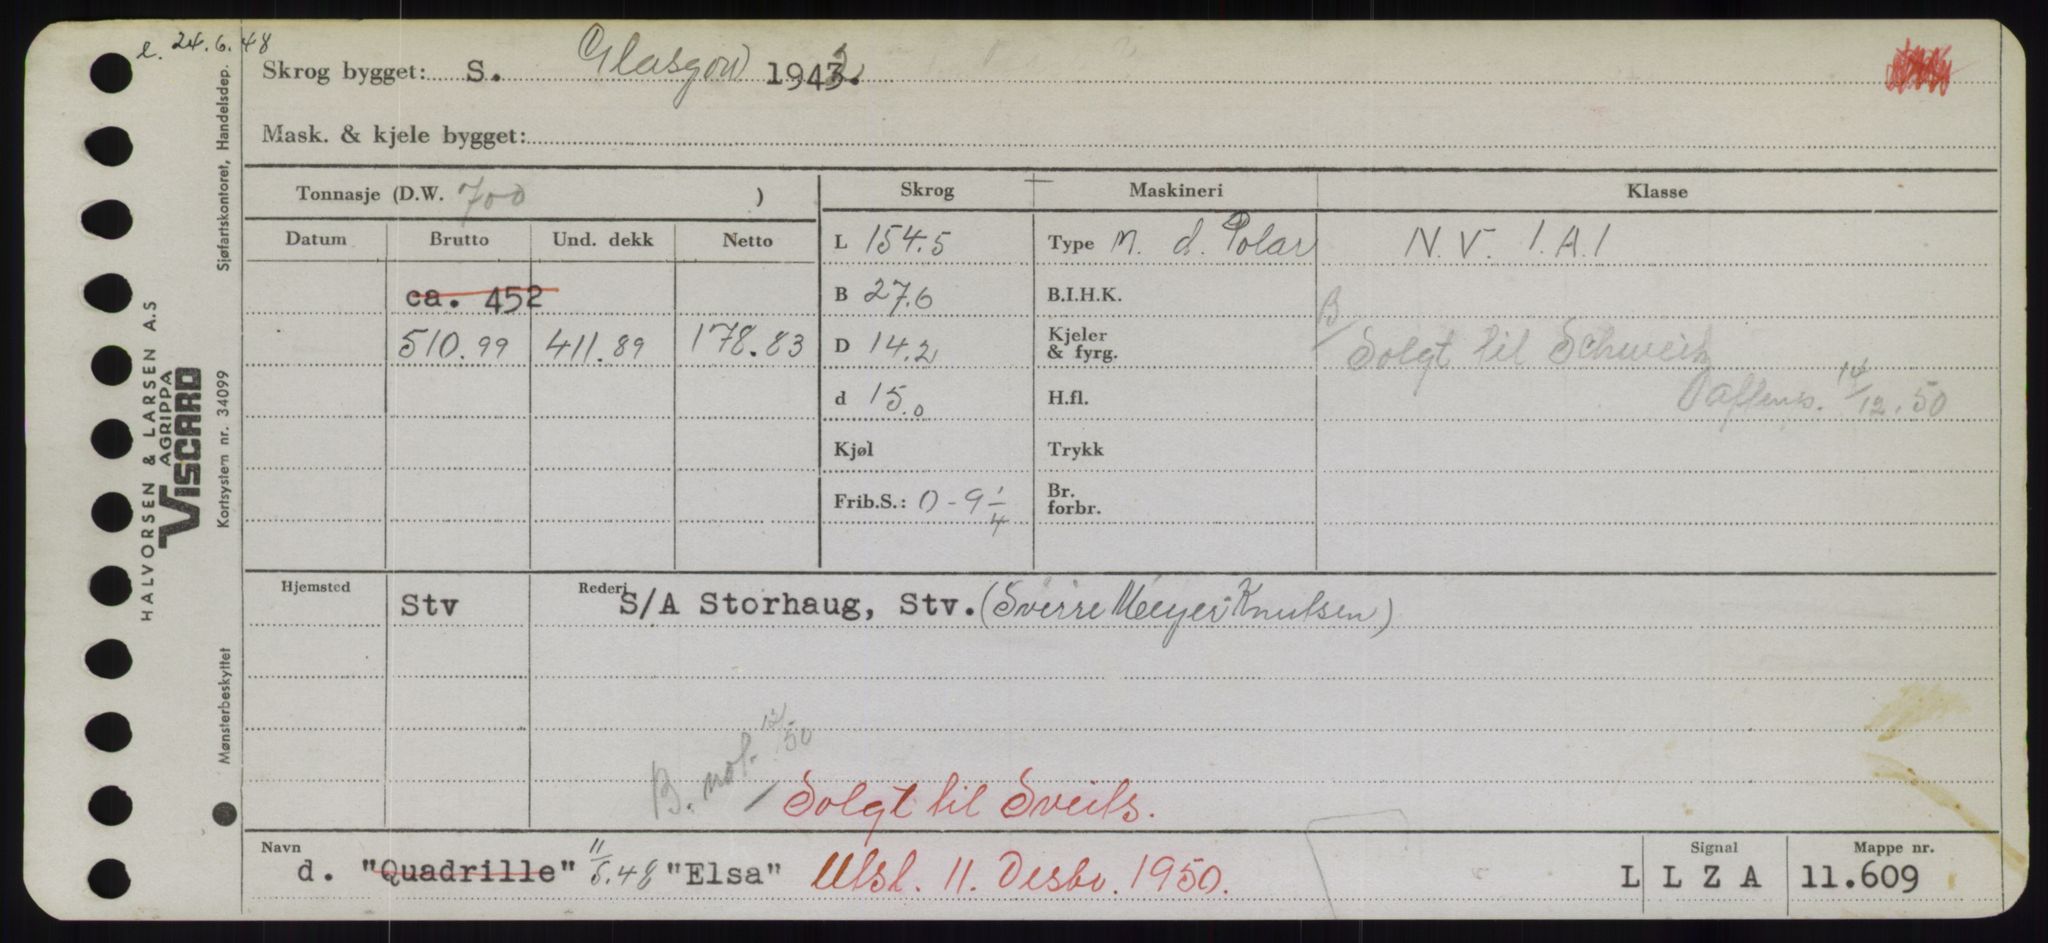 24.6.48
Skrog bygget: S. Glasgow 1942.
Mask. & kjele bygget:
Tonnasje (D.W. 700 )
Skrog Maskineri Klasse
Datum Brutto Und. dekk Netto
L 154.5 Type M. d. Polar N.V. 1.A.1
ca. 452
B 27.6 B.I.H.K.
510.99 411.89 178.83
D 14.2 Kjeler & fyrg. Solgt til Schweitz
d 15.0 H.fl. Daffens. 14/12.50
Kjøl Trykk
Frib.S.: 0-9 1/4 Br. forbr.
Hjemsted Stv Rederi S/A Storhaug, Stv. (Sverre Meyer Knutsen)
B. not. 12/50
Solgt til Sveits.
Navn Signal Mappe nr.
d. "Quadrille" 11/5.48 "Elsa" Utsl. 11. Desbr. 1950. L L Z A 11.609
HALVORSEN & LARSEN A.S
AGRIPPA
VISCARD
Sjøfartskontoret, Handelsdep.
Kortsystem nr. 34099
Mønsterbeskyttet